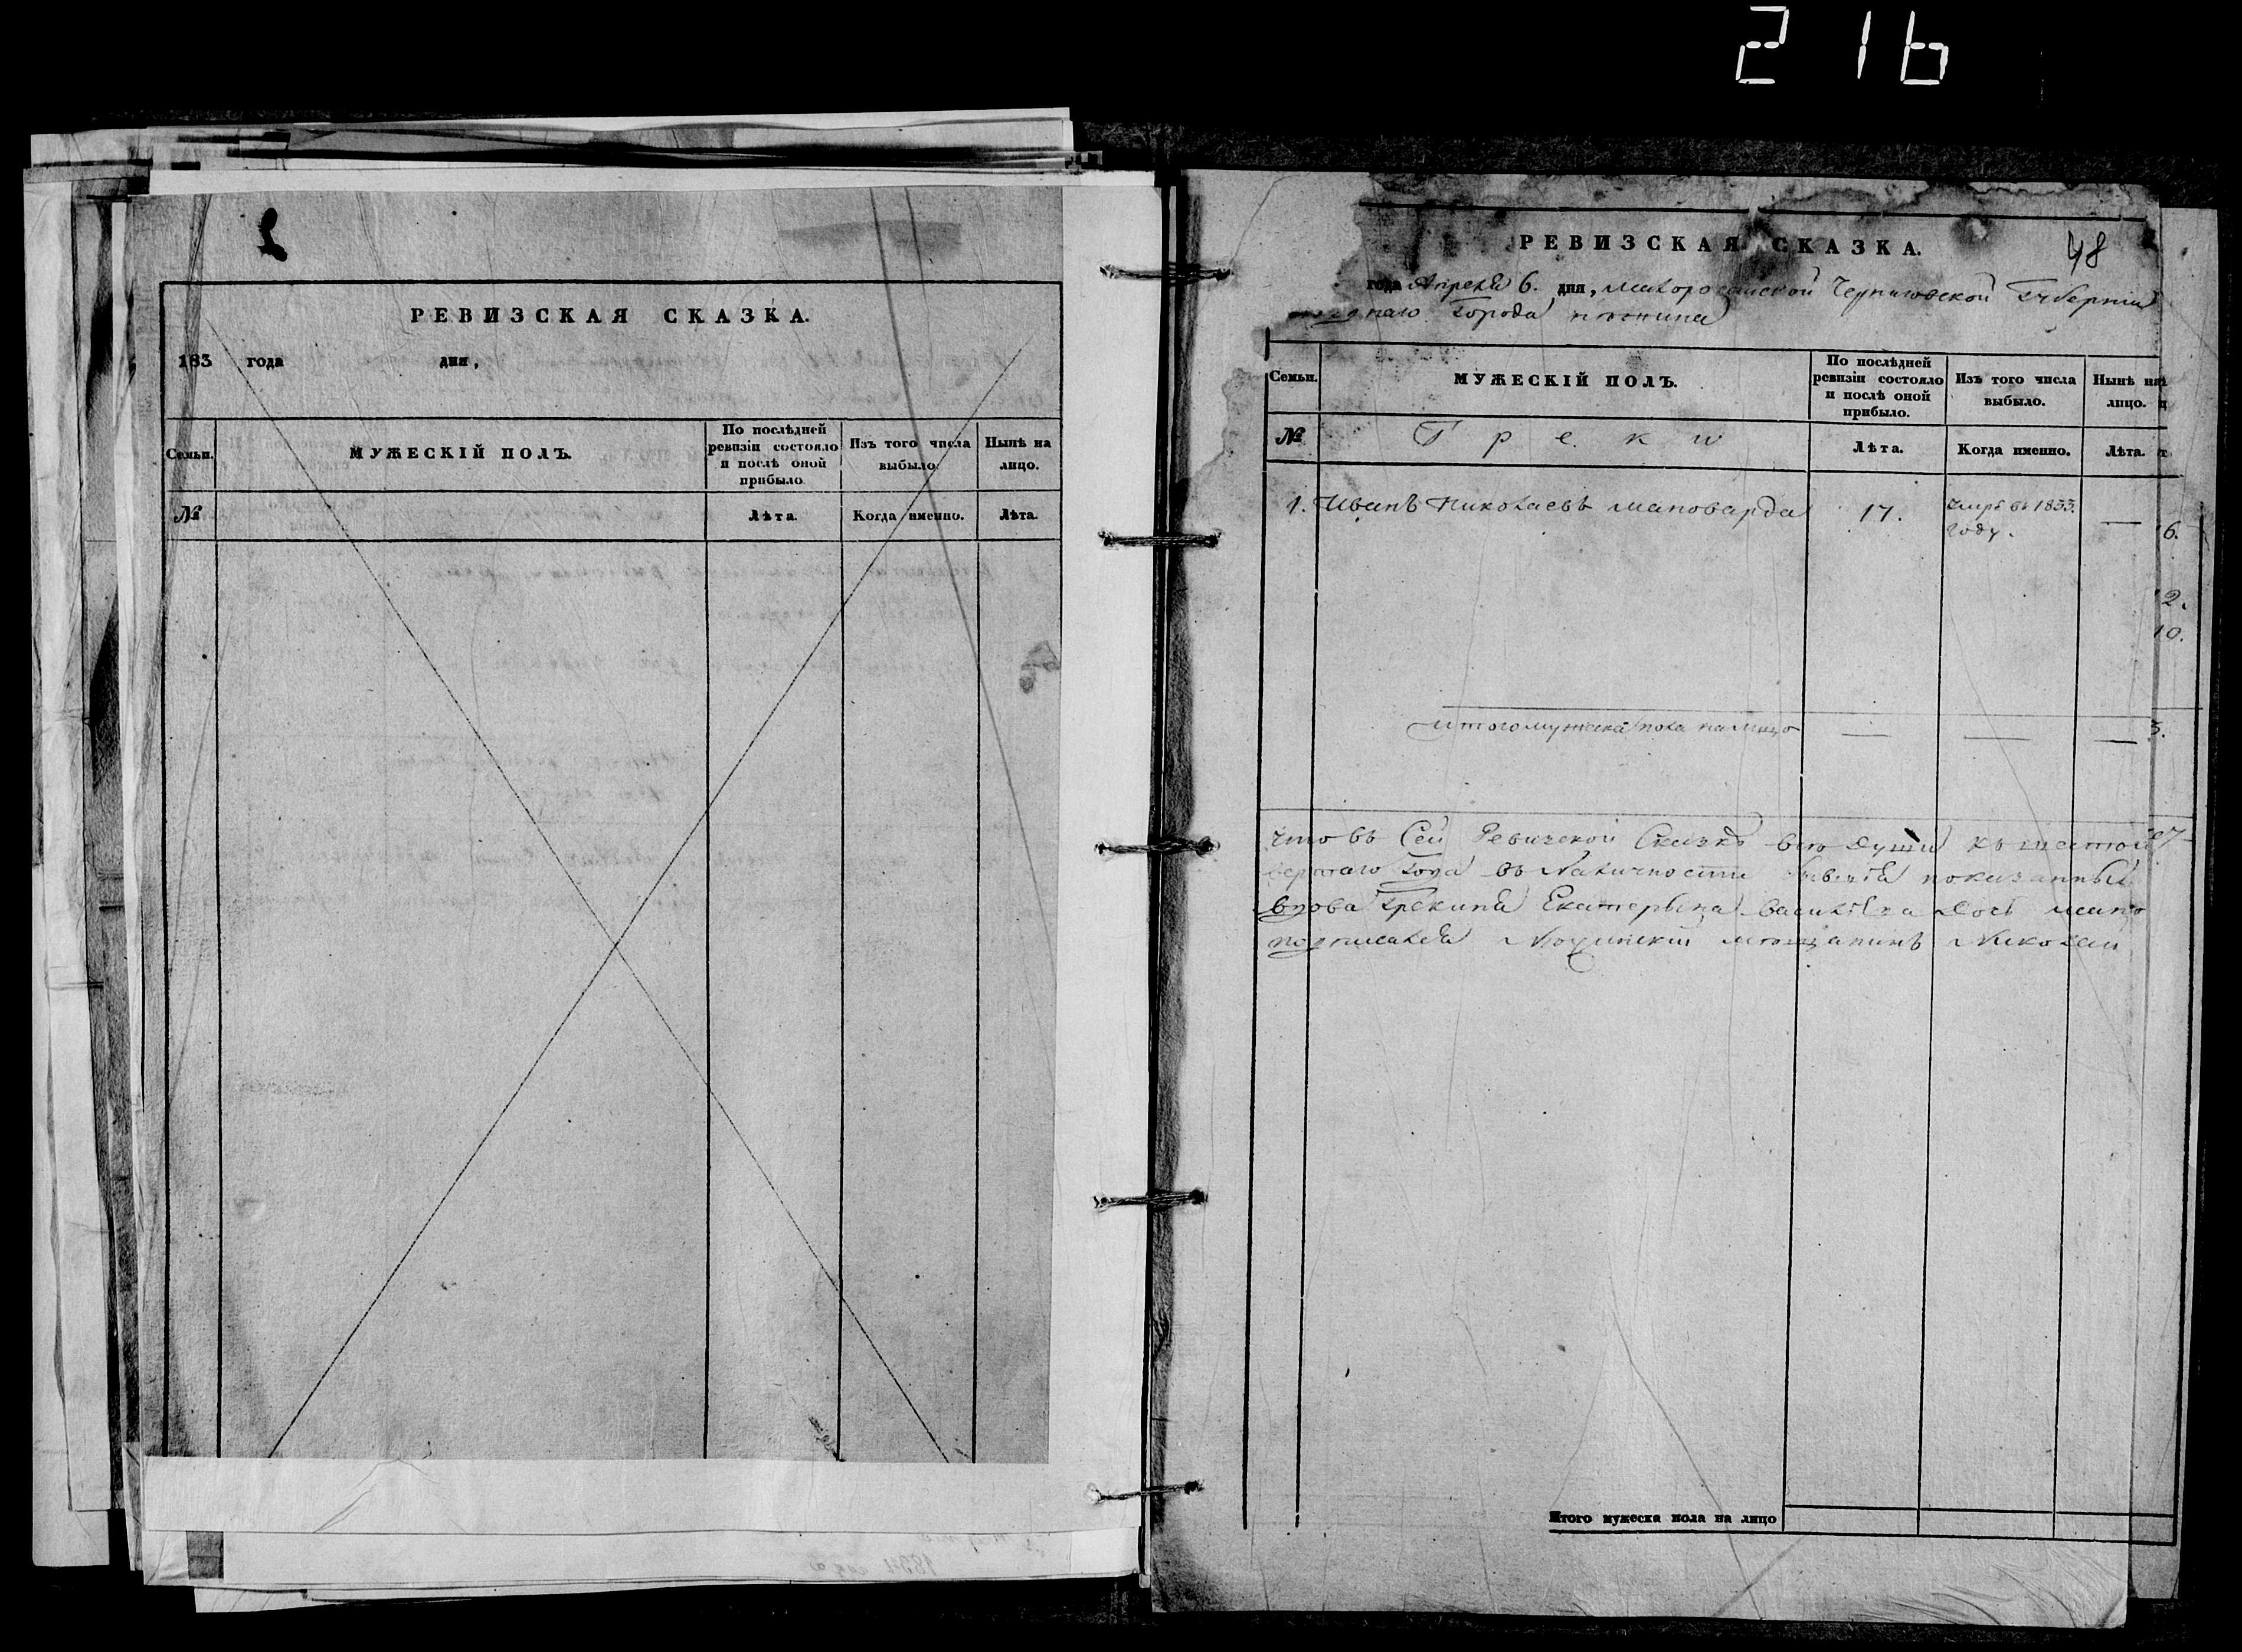 216
РЕВИЗСКАЯ СКАЗКА.
183 года дня,
Семьи.
МУЖЕСКІЙ ПОЛЪ.
По послѣдней
ревизіи состояло
и послѣ оной
прибыло.
Изъ того числа
выбыло.
Нынѣ на
лицо.
№
Лѣта.
Когда именно.
Лѣта.
РЕВИЗСКАЯ СКАЗКА.
48
года Апреля 6. дня, Малоросійской Черниговской Губерніи
Города нѣжина
Семьи.
МУЖЕСКІЙ ПОЛЪ.
По послѣдней
ревизіи состояло
и послѣ оной
прибыло.
Изъ того числа
выбыло.
Нынѣ на
лицо.
№
Греки
Лѣта.
Когда именно.
Лѣта.
1. Иванъ Николаевъ маповарда 17. умре въ 1833. —
году.
6.
2.
10.
итого мужска пола налицо — — — 3.
что въ Сей Ревизской Сказкѣ всѣ души къ шестой
вертаго Года въ Наличности показанный
вдова Грекиня Екатерына Василіева Дочь мапо
подписался Нѣжинскій мѣщанинъ Николай
Итого мужеска пола на лицо